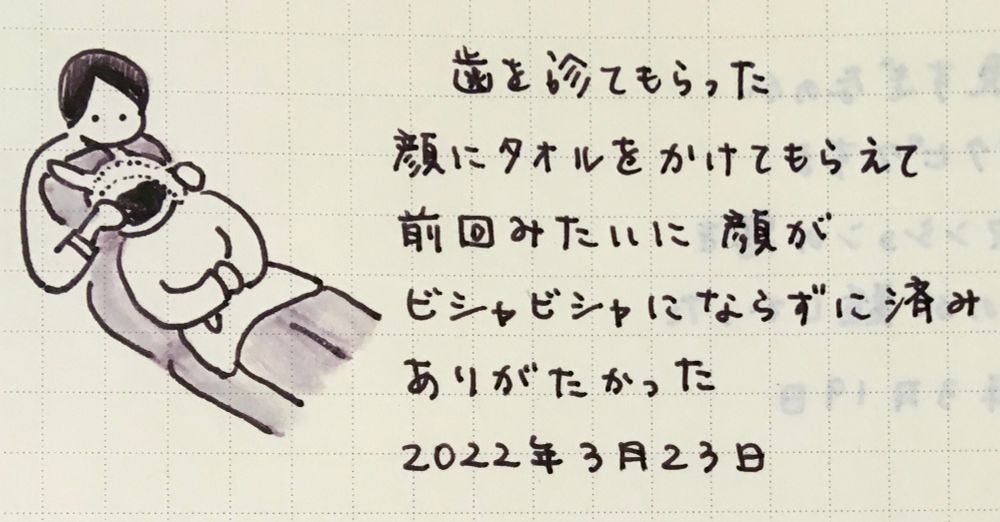 歯を診てもらった
顔にタオルをかけてもらえて
前回みたいに顔が
ビシャビシャにならずに済み
ありがたかった
2022年3月23日